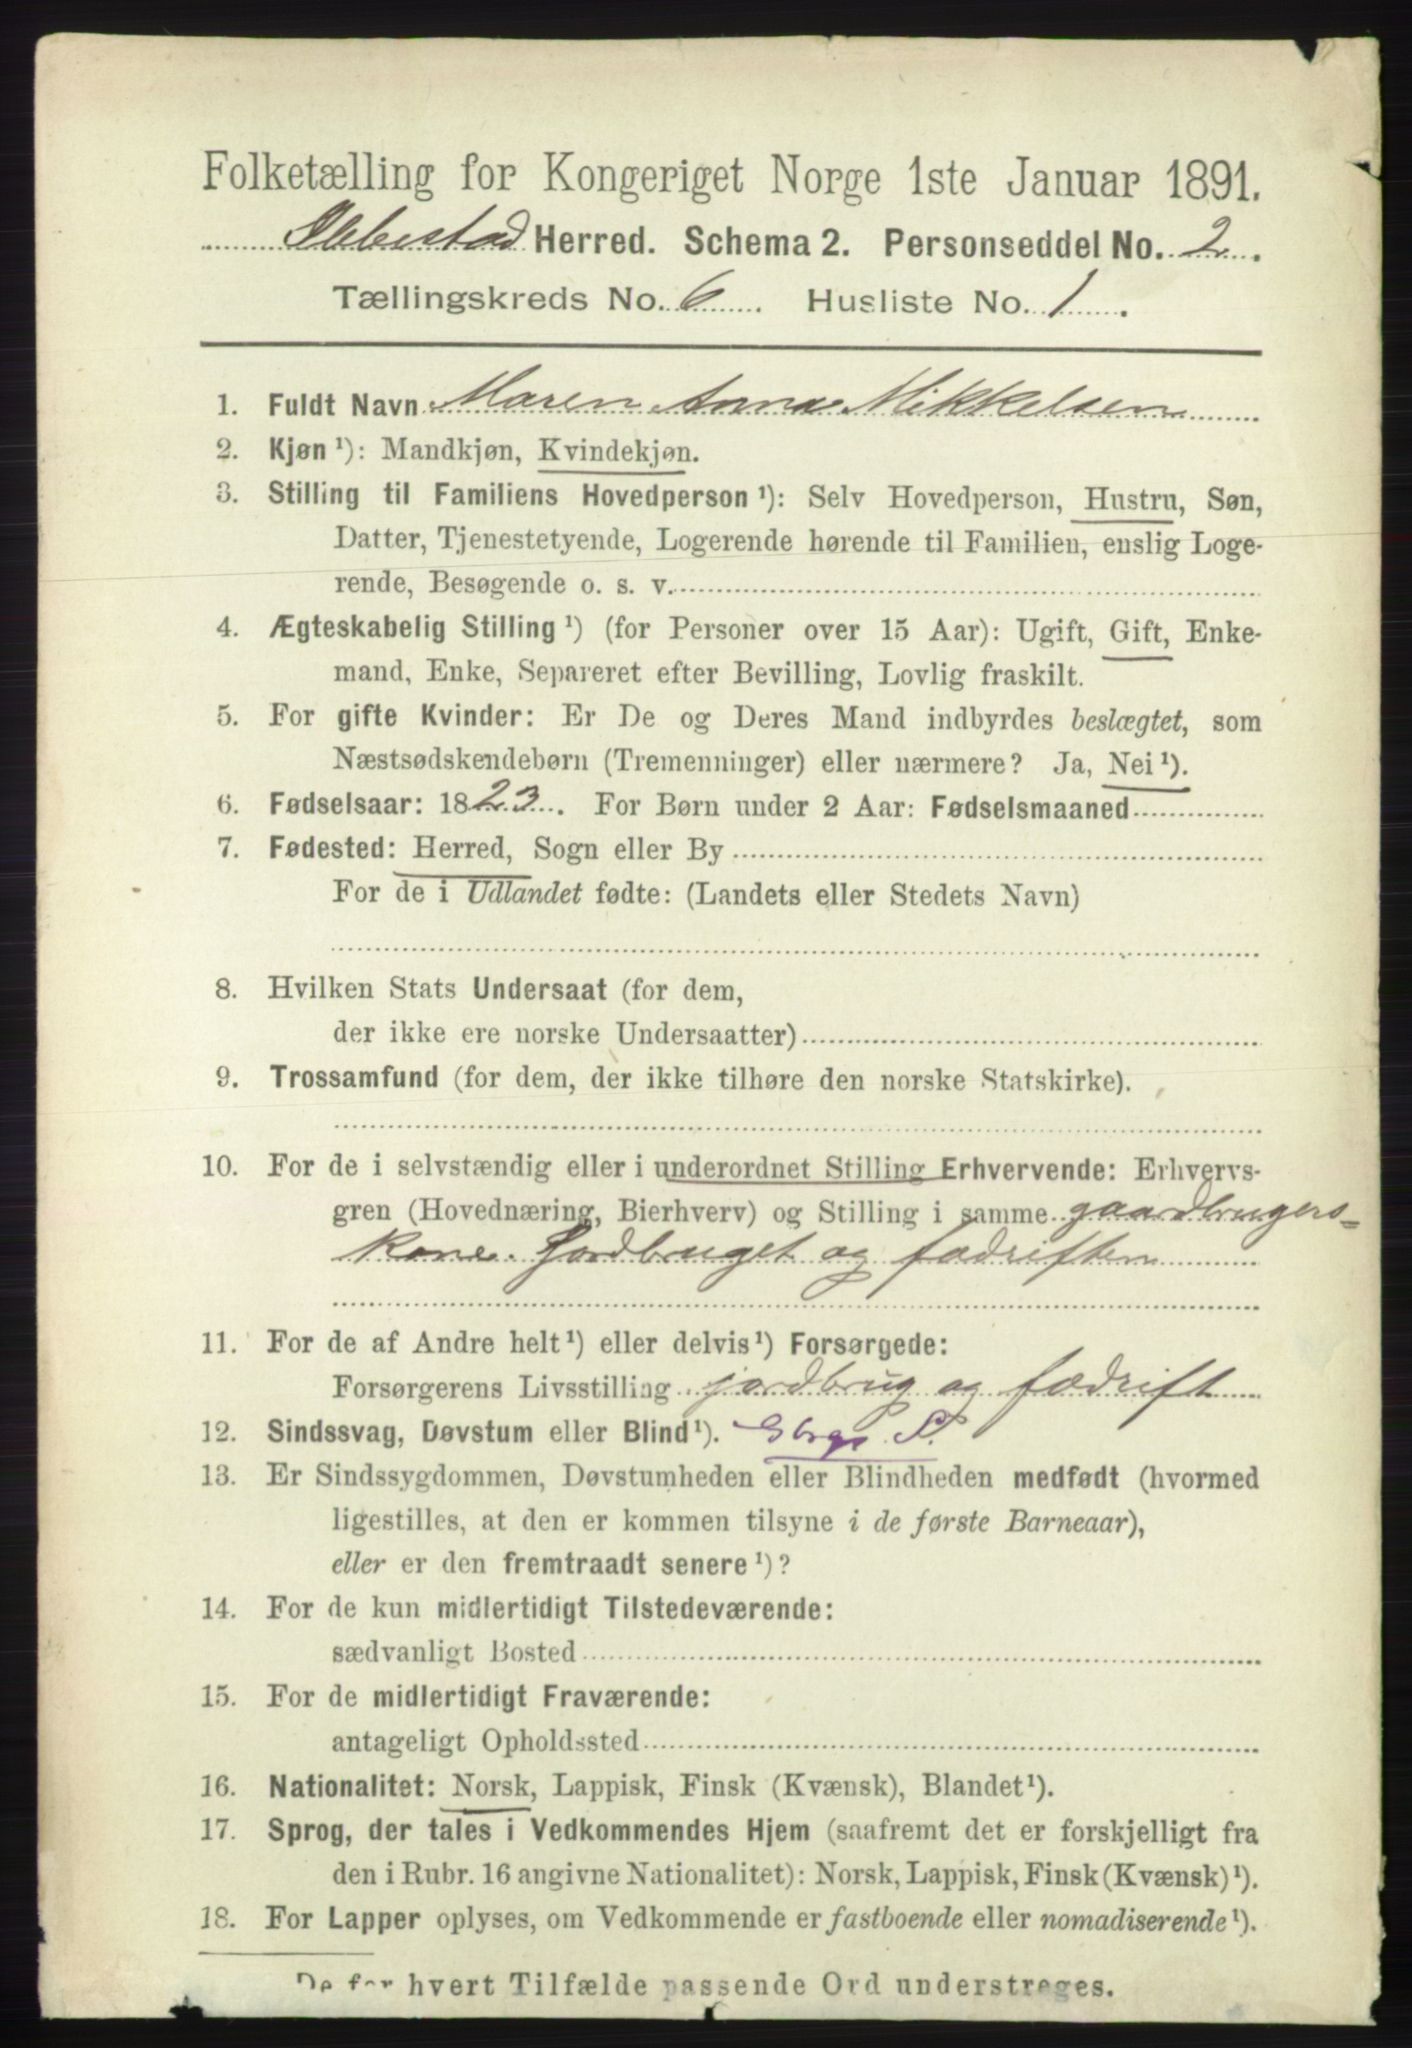 Folketælling for Kongeriget Norge 1ste Januar 1891.
Ibbestad Herred. Schema 2. Personseddel No. 2.
Tællingskreds No. 6. Husliste No. 1.
1. Fuldt Navn Maren Anna Mikkelsen
2. Kjøn ¹): Mandkjøn, Kvindekjøn.
3. Stilling til Familiens Hovedperson ¹): Selv Hovedperson, Hustru, Søn,
Datter, Tjenestetyende, Logerende hørende til Familien, enslig Loge-
rende, Besøgende o. s. v.
4. Ægteskabelig Stilling ¹) (for Personer over 15 Aar): Ugift, Gift, Enke-
mand, Enke, Separeret efter Bevilling, Lovlig fraskilt.
5. For gifte Kvinder: Er De og Deres Mand indbyrdes beslægtet, som
Næstsødskendebørn (Tremenninger) eller nærmere? Ja, Nei ¹).
6. Fødselsaar: 1823. For Børn under 2 Aar: Fødselsmaaned
7. Fødested: Herred, Sogn eller By
For de i Udlandet fødte: (Landets eller Stedets Navn)
8. Hvilken Stats Undersaat (for dem,
der ikke ere norske Undersaatter)
9. Trossamfund (for dem, der ikke tilhøre den norske Statskirke).
10. For de i selvstændig eller i underordnet Stilling Erhvervende: Erhvervs-
gren (Hovednæring, Bierhverv) og Stilling i samme gaardbrugers=
kone. Jordbruget og fædriften
11. For de af Andre helt ¹) eller delvis ¹) Forsørgede:
Forsørgerens Livsstilling jordbrug og fædrift
12. Sindssvag, Døvstum eller Blind ¹).
13. Er Sindssygdommen, Døvstumheden eller Blindheden medfødt (hvormed
ligestilles, at den er kommen tilsyne i de første Barneaar),
eller er den fremtraadt senere ¹)?
14. For de kun midlertidigt Tilstedeværende:
sædvanligt Bosted
15. For de midlertidigt Fraværende:
antageligt Opholdssted
16. Nationalitet: Norsk, Lappisk, Finsk (Kvænsk), Blandet ¹).
17. Sprog, der tales i Vedkommendes Hjem (saafremt det er forskjelligt fra
den i Rubr. 16 angivne Nationalitet): Norsk, Lappisk, Finsk (Kvænsk) ¹).
18. For Lapper oplyses, om Vedkommende er fastboende eller nomadiserende ¹).
De for hvert Tilfælde passende Ord understreges.